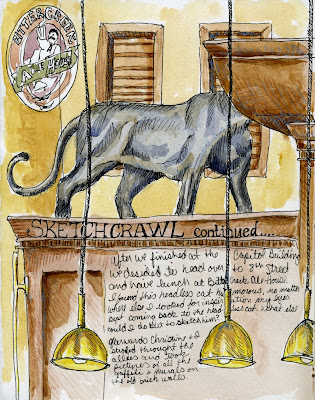 BITTERCREEK
ALE HOUSE
SKETCHCRAWL continued....
After we finished at the Capitol Building
we decided to head over to 8th Street
and have lunch at Bittercreek Ale House.
I found this headless cat humorous, no matter
where else I looked for inspiration my eyes
kept coming back to the headless cat. What else
could I do but to sketch him?
Afterwards Christine & I
strolled throught the
allees and took
pictures of all the
graffiti & murals on
the old brick walls.